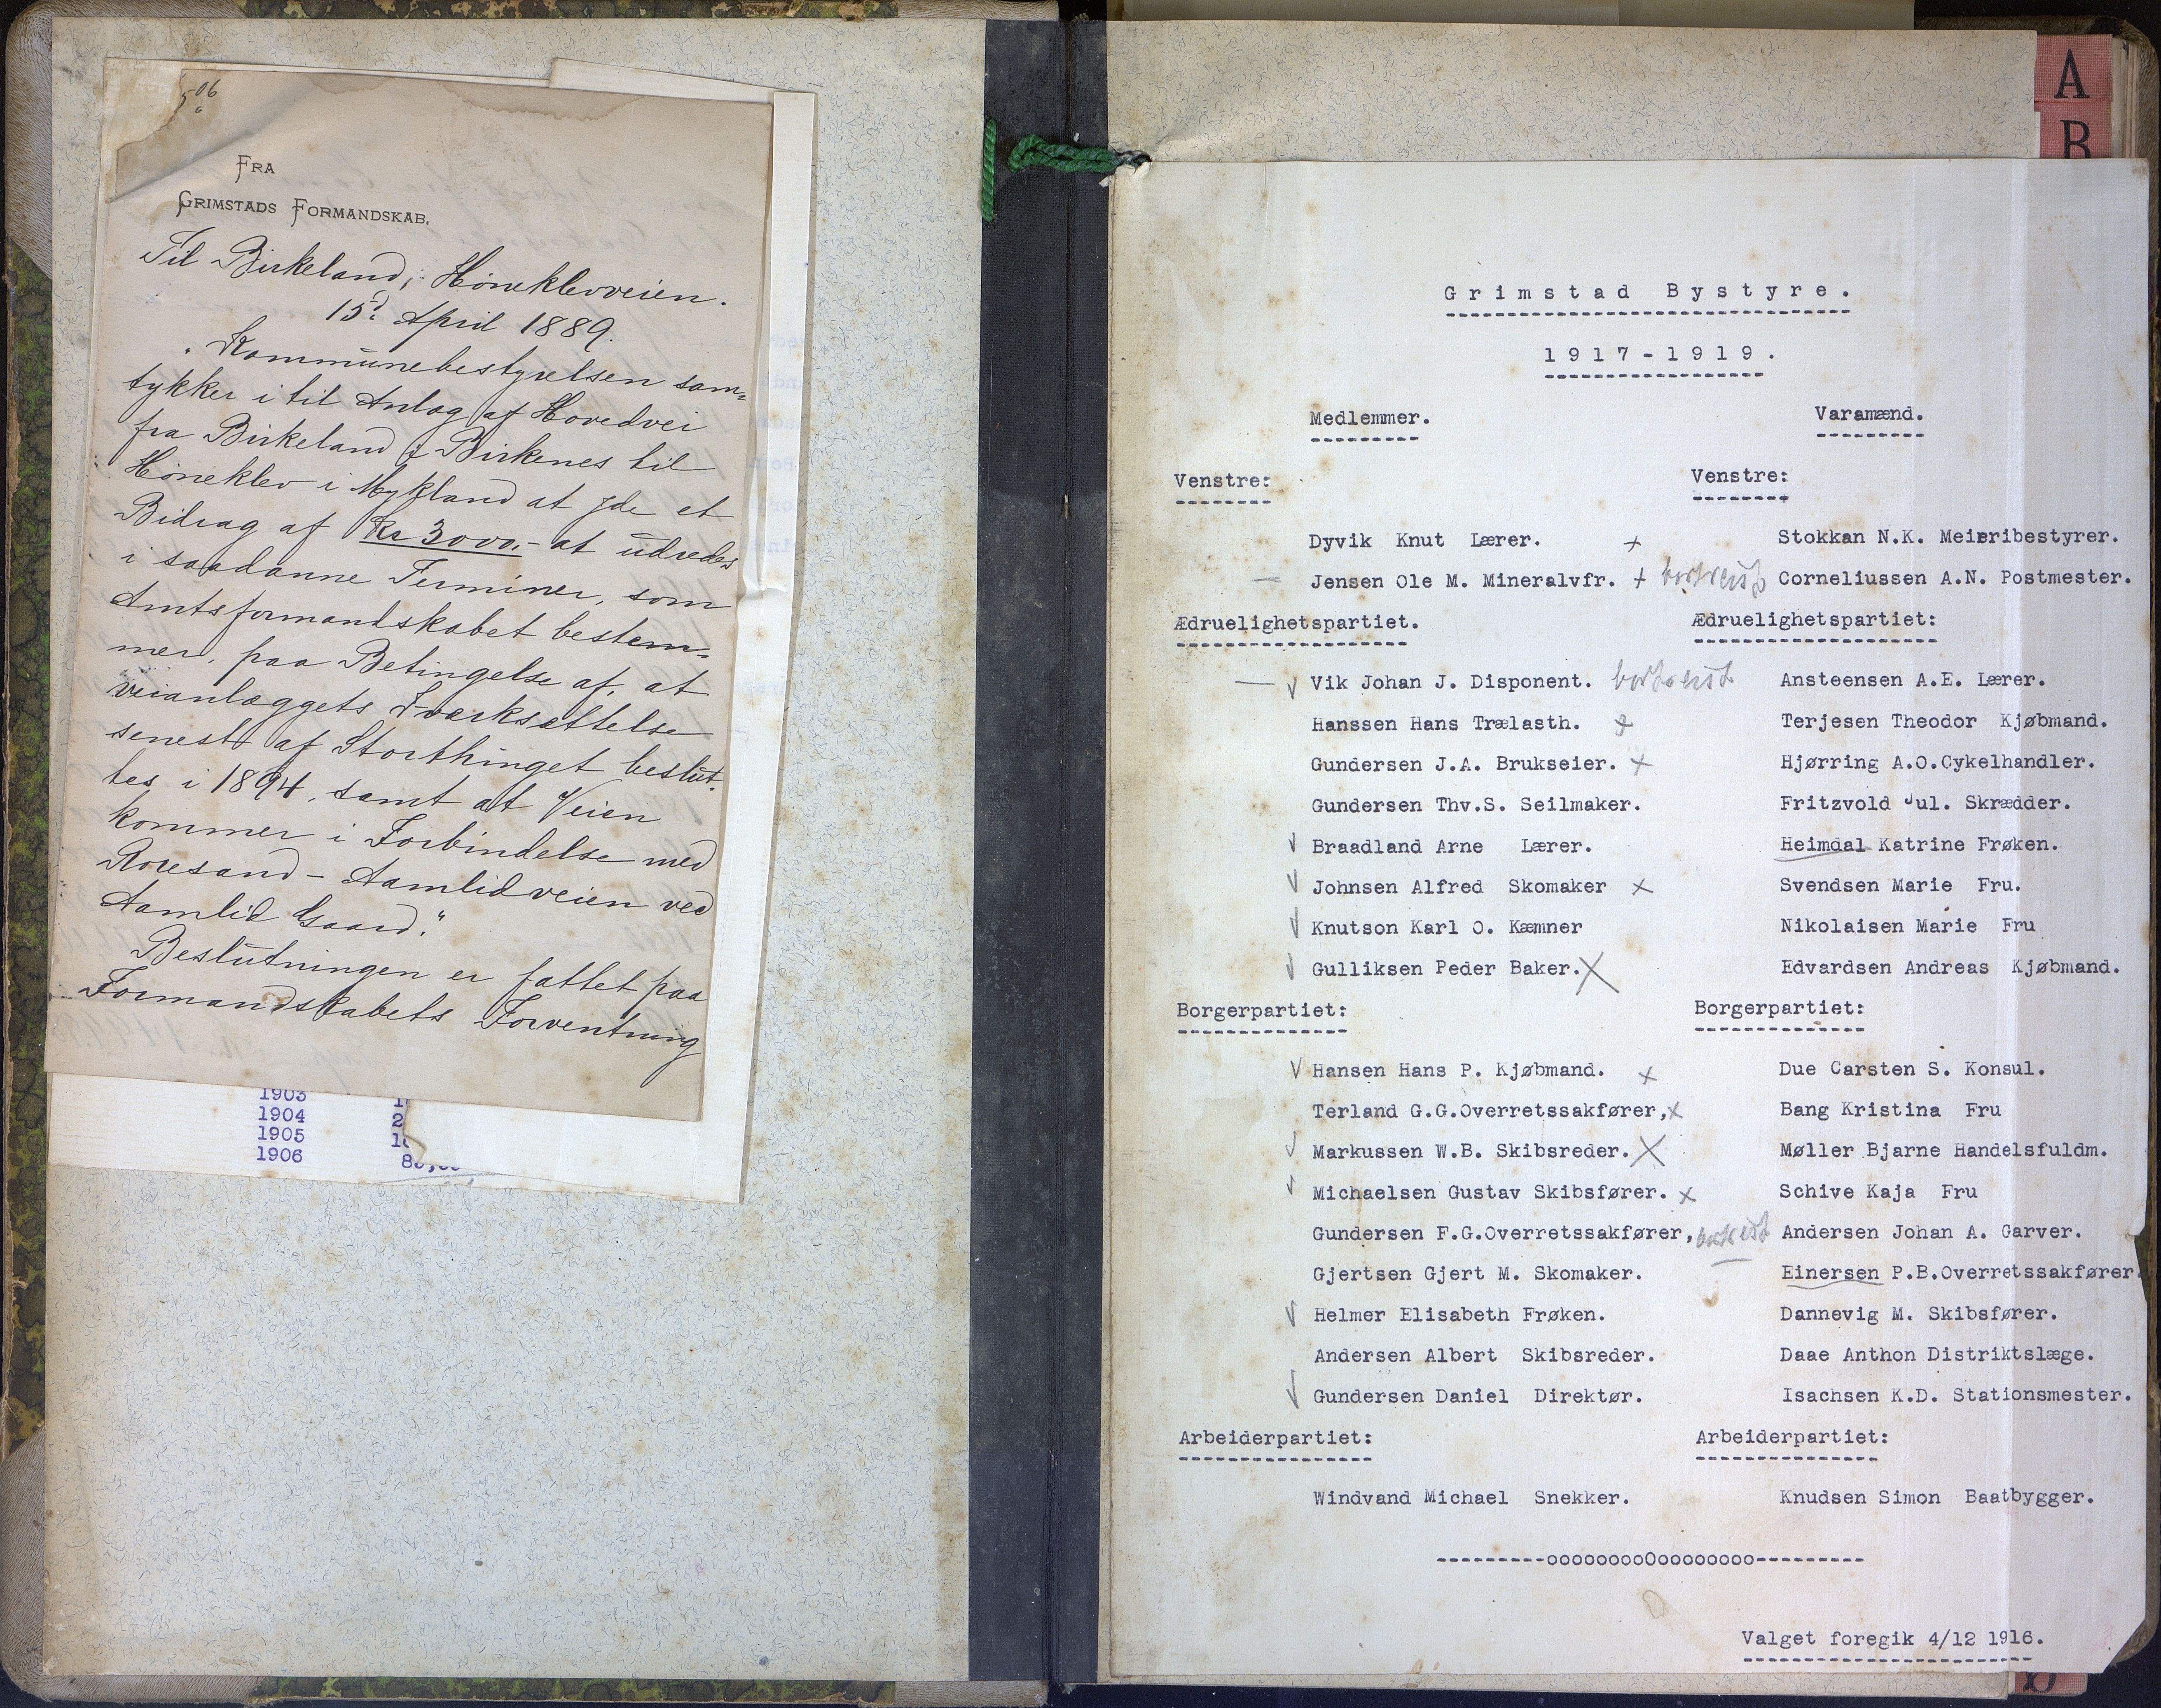 FRA
GRIMSTADS FORMANDSKAB.
Til Birkeland, Høneklevveien.
15d April 1889.
"Kommunebestyrelsen sam-
tykker i til Anlæg af Hovedvei
fra Birkeland i Birkenes til
Høneklev i Mykland at yde et
Bidrag af Kr 3000,- at udredes
i saadanne Terminer, som
Amtsformandskabet bestem-
mer, paa Betingelse af, at
veianlæggets Iværksættelse
senest af Storthinget beslut-
tes i 1894, samt at Veien
kommer i Forbindelse med
Roresand - Aamlidveien ved
Aamlid Gaard."
Beslutningen er fattet paa
Formandskabets Forventning
1903
1904 2
1905
1906
A
B
Grimstad Bystyre.
1917-1919.
Medlemmer. Varamænd.
Venstre: Venstre:
Dyvik Knut Lærer. + Stokkan N.K. Meieribestyrer.
Jensen Ole M. Mineralvfr. + bortreist Corneliussen A.N. Postmester.
Ædruelighetspartiet. Ædruelighetspartiet:
Vik Johan J. Disponent. bortreist Ansteensen A.E. Lærer.
Hanssen Hans Trælasth. + Terjesen Theodor Kjøbmand.
Gundersen J.A. Brukseier. + Hjørring A.O.Cykelhandler.
Gundersen Thv.S. Seilmaker. Fritzvold Jul. Skrædder.
Braadland Arne Lærer. Heimdal Katrine Frøken.
Johnsen Alfred Skomaker x Svendsen Marie Fru.
Knutson Karl O. Kæmner Nikolaisen Marie Fru
Gulliksen Peder Baker. X Edvardsen Andreas Kjøbmand.
Borgerpartiet: Borgerpartiet:
Hansen Hans P. Kjøbmand. x Due Carsten S. Konsul.
Terland G.G.Overretssakfører, x Bang Kristina Fru
Markussen W.B. Skibsreder. X Møller Bjarne Handelsfuldm.
Michaelsen Gustav Skibsfører. x Schive Kaja Fru
Gundersen F.G.Overretssakfører, bortreist Andersen Johan A. Garver.
Gjertsen Gjert M. Skomaker. Einersen P.B.Overretssakfører.
Helmer Elisabeth Frøken. Dannevig M. Skibsfører.
Andersen Albert Skibsreder. Daae Anthon Distriktslæge.
Gundersen Daniel Direktør. Isachsen K.D. Stationsmester.
Arbeiderpartiet: Arbeiderpartiet:
Windvand Michael Snekker. Knudsen Simon Baatbygger.
---------ooooooooOoooooooo---------
Valget foregik 4/12 1916.